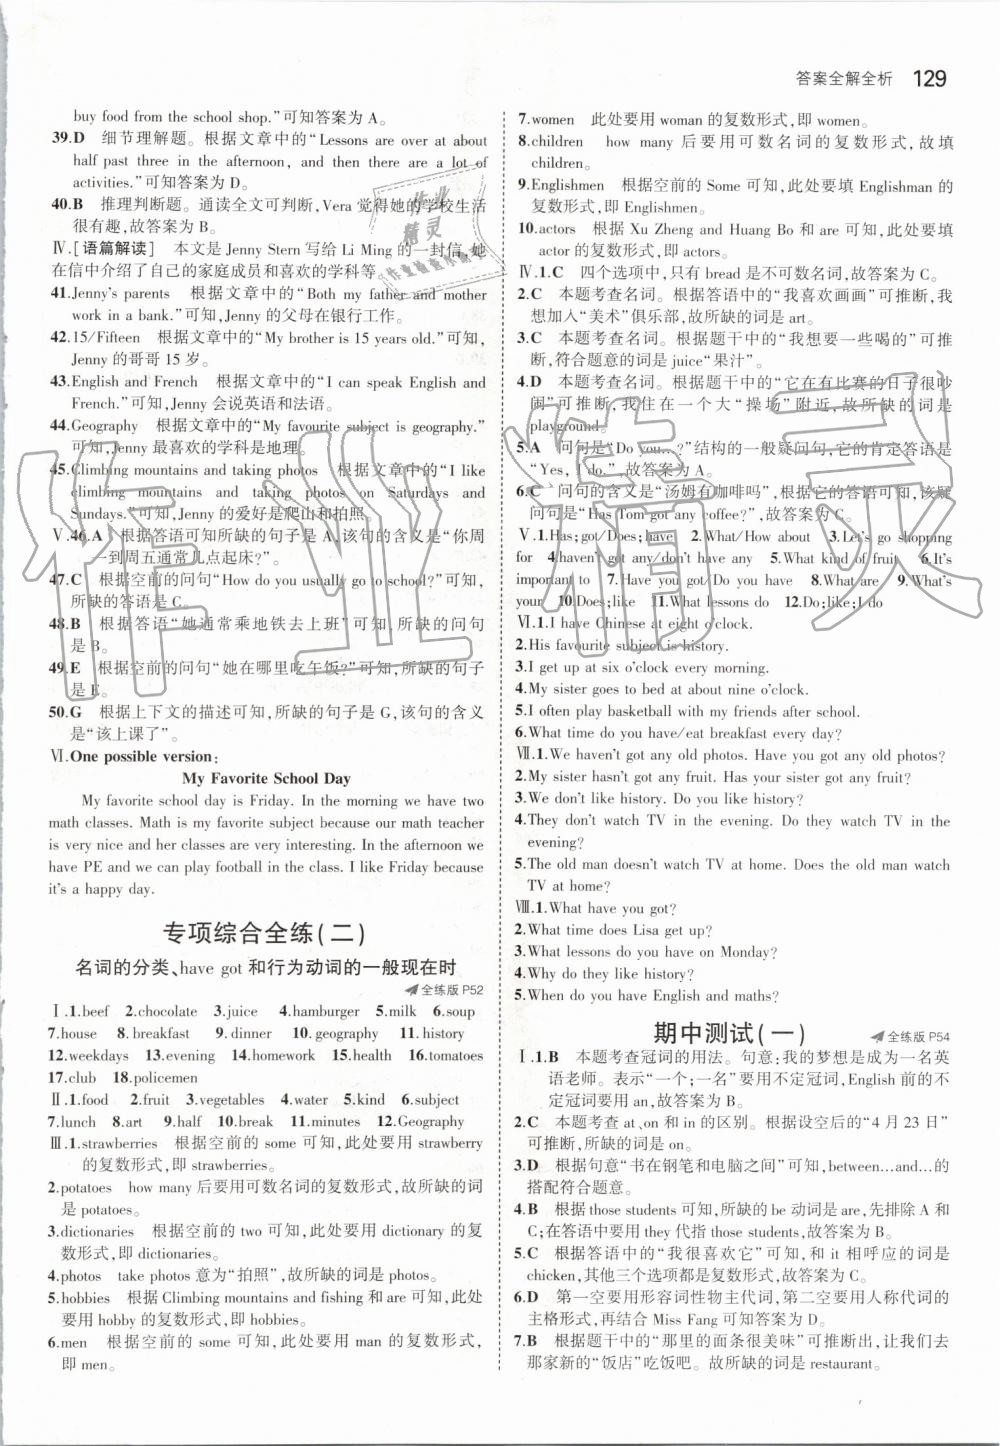 答案全解全析 129
buy food from the school shop."可知答案为 A。
39.D 细节理解题。根据文章中的"Lessons are over at about
half past three in the afternoon, and then there are a lot of
activities."可知答案为 D。
40.B 推理判断题。通读全文可判断,Vera 觉得她的学校生活
很有趣,故答案为 B。
Ⅳ.[语篇解读] 本文是 Jenny Stern 写给 Li Ming 的一封信,她
在信中介绍了自己的家庭成员和喜欢的学科等。
41.Jenny's parents 根据文章中的"Both my father and mother
work in a bank."可知,Jenny 的父母在银行工作。
42.15/Fifteen 根据文章中的"My brother is 15 years old."可知,
Jenny 的哥哥 15 岁。
43.English and French 根据文章中的"I can speak English and
French."可知,Jenny 会说英语和法语。
44.Geography 根据文章中的"My favourite subject is geography."
可知,Jenny 最喜欢的学科是地理。
45.Climbing mountains and taking photos 根据文章中的"I like
climbing mountains and taking photos on Saturdays and
Sundays."可知,Jenny 的爱好是爬山和拍照。
Ⅴ.46.A 根据答语可知所缺的句子是 A,该句的含义是"你周
一到周五通常几点起床?"
47.C 根据空前的问句"How do you usually go to school?"可知,
所缺的答语是 C。
48.B 根据答语"她通常乘地铁去上班"可知,所缺的问句
是 B。
49.E 根据空前的问句"她在哪里吃午饭?"可知,所缺的句子
是 E。
50.G 根据上下文的描述可知,所缺的句子是 G,该句的含义
是"该上课了"。
Ⅵ.One possible version:
My Favorite School Day
My favorite school day is Friday. In the morning we have two
math classes. Math is my favorite subject because our math teacher
is very nice and her classes are very interesting. In the afternoon we
have PE and we can play football in the class. I like Friday because
it's a happy day.
专项综合全练(二)
名词的分类、have got 和行为动词的一般现在时
全练版 P52
Ⅰ.1.beef 2.chocolate 3.juice 4.hamburger 5.milk 6.soup
7.house 8.breakfast 9.dinner 10.geography 11.history
12.weekdays 13.evening 14.homework 15.health 16.tomatoes
17.club 18.policemen
Ⅱ.1.food 2.fruit 3.vegetables 4.water 5.kind 6.subject
7.lunch 8.art 9.half 10.break 11.minutes 12.Geography
Ⅲ.1.strawberries 根据空前的 some 可知,此处要用 strawberry
的复数形式,即 strawberries。
2.potatoes how many 后要用可数名词的复数形式,故所缺的词
是 potatoes。
3.dictionaries 根据空前的 two 可知,此处要用 dictionary 的复
数形式,即 dictionaries。
4.photos take photos 意为"拍照",故所缺的词是 photos。
5.hobbies 根据 Climbing mountains and fishing 和 are 可知,此处
要用 hobby 的复数形式,即 hobbies。
6.men 根据空前的 some 可知,此处要用 man 的复数形式,
即 men。
7.women 此处要用 woman 的复数形式,即 women。
8.children how many 后要用可数名词的复数形式,故填
children。
9.Englishmen 根据空前的 Some 可知,此处要填 Englishman 的
复数形式,即 Englishmen。
10.actors 根据 Xu Zheng and Huang Bo 和 are 可知,此处要填
actor 的复数形式,即 actors。
Ⅳ.1.C 四个选项中,只有 bread 是不可数名词,故答案为 C。
2.C 本题考查名词。根据答语中的"我喜欢画画"可推断,我
想加入"美术"俱乐部,故所缺的词是 art。
3.C 本题考查名词。根据题干中的"我想要一些喝的"可推
断,符合题意的词是 juice"果汁"。
4.D 本题考查名词。根据题干中的"它在有比赛的日子很吵
闹"可推断,我住在一个大"操场"附近,故所缺的词是
playground。
5.A 问句是"Do you…?"结构的一般疑问句,它的肯定答语是
"Yes, I do.",故答案为 A。
6.C 问句的含义是"汤姆有咖啡吗",根据它的答语可知,该疑
问句是"Has Tom got any coffee?",故答案为 C。
Ⅴ.1.Has;got/Does;have 2.What/How about 3.Let's go shopping
for 4.haven't got any/don't have any 5.What kind of fruit 6.It's
important to 7.Have you got/Do you have 8.What are 9.What's
your 10.Does;like 11.What lessons 12.Do;like;I do
Ⅵ.1.I have Chinese at eight o'clock.
2.His favourite subject is history.
3.I get up at six o'clock every morning.
4.My sister goes to bed at about nine o'clock.
5.I often play basketball with my friends after school.
6.What time do you have/eat breakfast every day?
Ⅶ.1.We haven't got any old photos. Have you got any old photos?
2.My sister hasn't got any fruit. Has your sister got any fruit?
3.We don't like history. Do you like history?
4.They don't watch TV in the evening. Do they watch TV in the
evening?
5.The old man doesn't watch TV at home. Does the old man watch
TV at home?
Ⅷ.1.What have you got?
2.What time does Lisa get up?
3.What lessons do you have on Monday?
4.Why do they like history?
5.When do you have English and maths?
期中测试(一)
全练版 P54
Ⅰ.1.B 本题考查冠词的用法。句意:我的梦想是成为一名英
语老师。表示"一个;一名"要用不定冠词,English 前的不
定冠词要用 an,故答案为 B。
2.C 本题考查 at、on 和 in 的区别。根据设空后的"4 月 23 日"
可推断,所缺的词是 on。
3.D 根据句意"书在钢笔和电脑之间"可知,between…and…的
搭配符合题意。
4.B 根据 those students 可知,所缺的 be 动词是 are,先排除 A 和
C;在答语中要用 they 代指 those students,故答案为 B。
5.C 根据答语中的"我很喜欢它"可知,和 it 相呼应的词是
chicken,其他三个选项都是复数形式,故答案为 C。
6.D 第一空要用形容词性物主代词,第二空要用人称代词的
主格形式,再结合 Miss Fang 可知答案为 D。
7.B 根据题干中的"那里的面条很美味"可推断出,让我们去
那家新的"饭店"吃饭吧。故所缺的词是 restaurant。
作业精灵